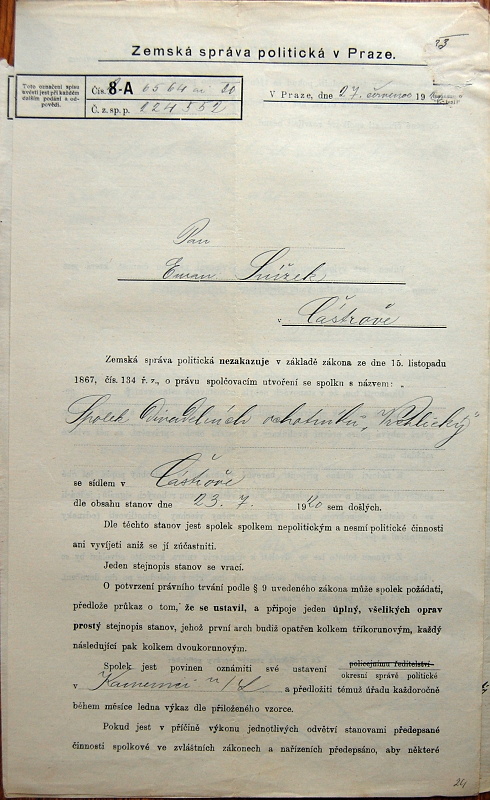 Zemská správa politická v Praze.
Toto označení spisu
budiž při každém
dalším podání
Čís. 8-A 6564 20
Č. z. sp. p. 224552
V Praze, dne 27. července 19
Pan
Eman
v Částrově
Zemská správa politická nezakazuje v základě zákona ze dne 15. listopadu
1867, čís. 134 ř. z., o právu spolčovacím utvoření se spolku s názvem: „
Spolek divadelních ochotníků „Vrchlický"
se sídlem v Částrově
dle obsahu stanov dne 23. 7. 1920 sem došlých.
Dle těchto stanov jest spolek spolkem nepolitickým a nesmí politické činnosti
ani vyvíjeti aniž se jí zúčastniti.
Jeden stejnopis stanov se vrací.
O potvrzení právního trvání podle § 9 uvedeného zákona může spolek požádati,
předlože průkaz o tom, že se ustavil, a připoje jeden úplný, všelikých oprav
prostý stejnopis stanov, jehož první arch budiž opatřen kolkem tříkorunovým, každý
následující pak kolkem dvoukorunovým.
Spolek jest povinen oznámiti své ustavení policejnímu ředitelství
okresní správě politické
v Kamenici n/L a předložiti témuž úřadu každoročně
během měsíce ledna výkaz dle přiloženého vzorce.
Pokud jest v příčině výkonu jednotlivých odvětví stanovami předepsané
činnosti spolkové ve zvláštních zákonech a nařízeních předepsáno, aby některé
24